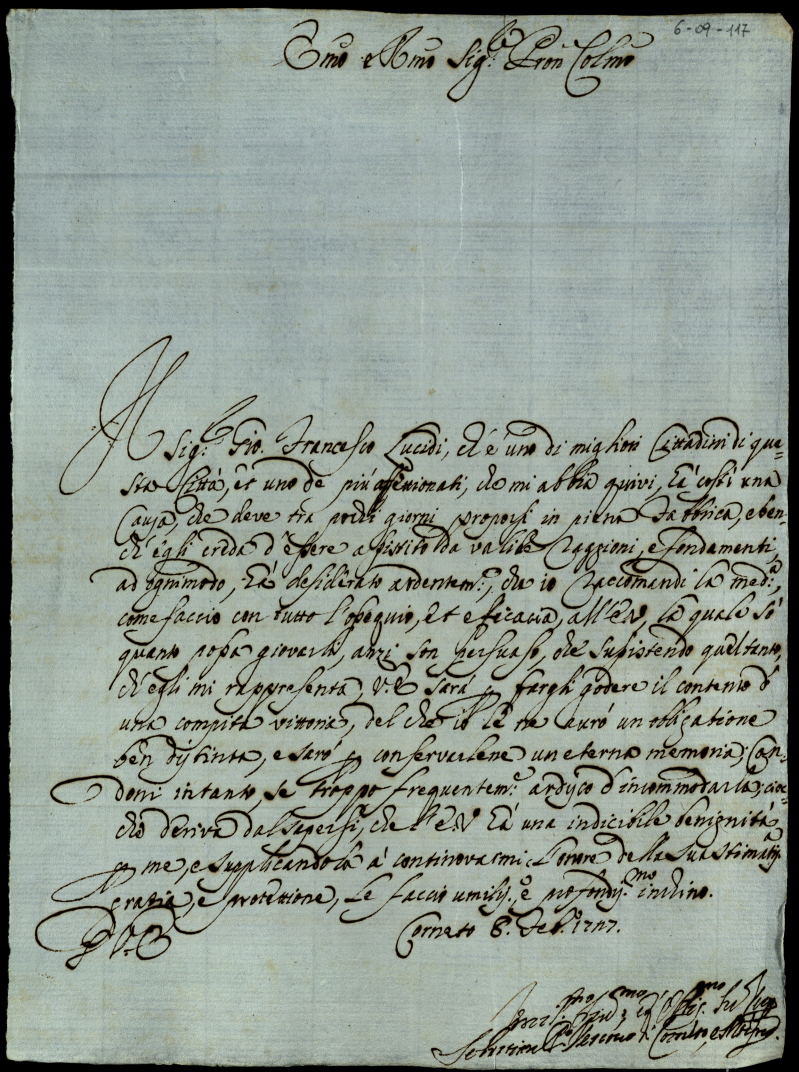 6-09-117
Emo e Rmo Sig.re Pron Colmo
Il Sig.re Gio. Francesco Lucidi, ch'è uno di migliori Cittadini di que=
sta Città, et uno de più affezionati, che mi abbia quivi, hà costì una
Causa, che deve tra pochi giorni proporsi in piena Rabbrica, e ben=
ch'egli creda d'essere assistito da valide raggioni, e fondamenti,
ad ogni modo, hà desiderato ardentem.e, che io raccomandi la med.a,
come faccio con tutto l'ossequio, et efficacia, all'E.V., la quale sò
quanto possa giovarla, anzi son persuaso, che sussistendo quel tanto,
ch'egli mi rappresenta, V.E. sarà p fargli godere il contento d'
una compita vittoria, del che io le ne aurò un obligatione
ben distinta, e sarò p conservarlene un eterna memoria; Con=
doni intanto, se troppo frequentem.e ardisco d'incommodarla; cioc=
chè deriva dal sapersi, che l'E.V. hà una indicibile benignità
p me, e supplicandola à continovarmi l'onore della sua stimatis.a
grazia, e protettione, le faccio umilis.o e profondis.mo inchino.
D V.E. Corneto 8. Feb.o 1727.